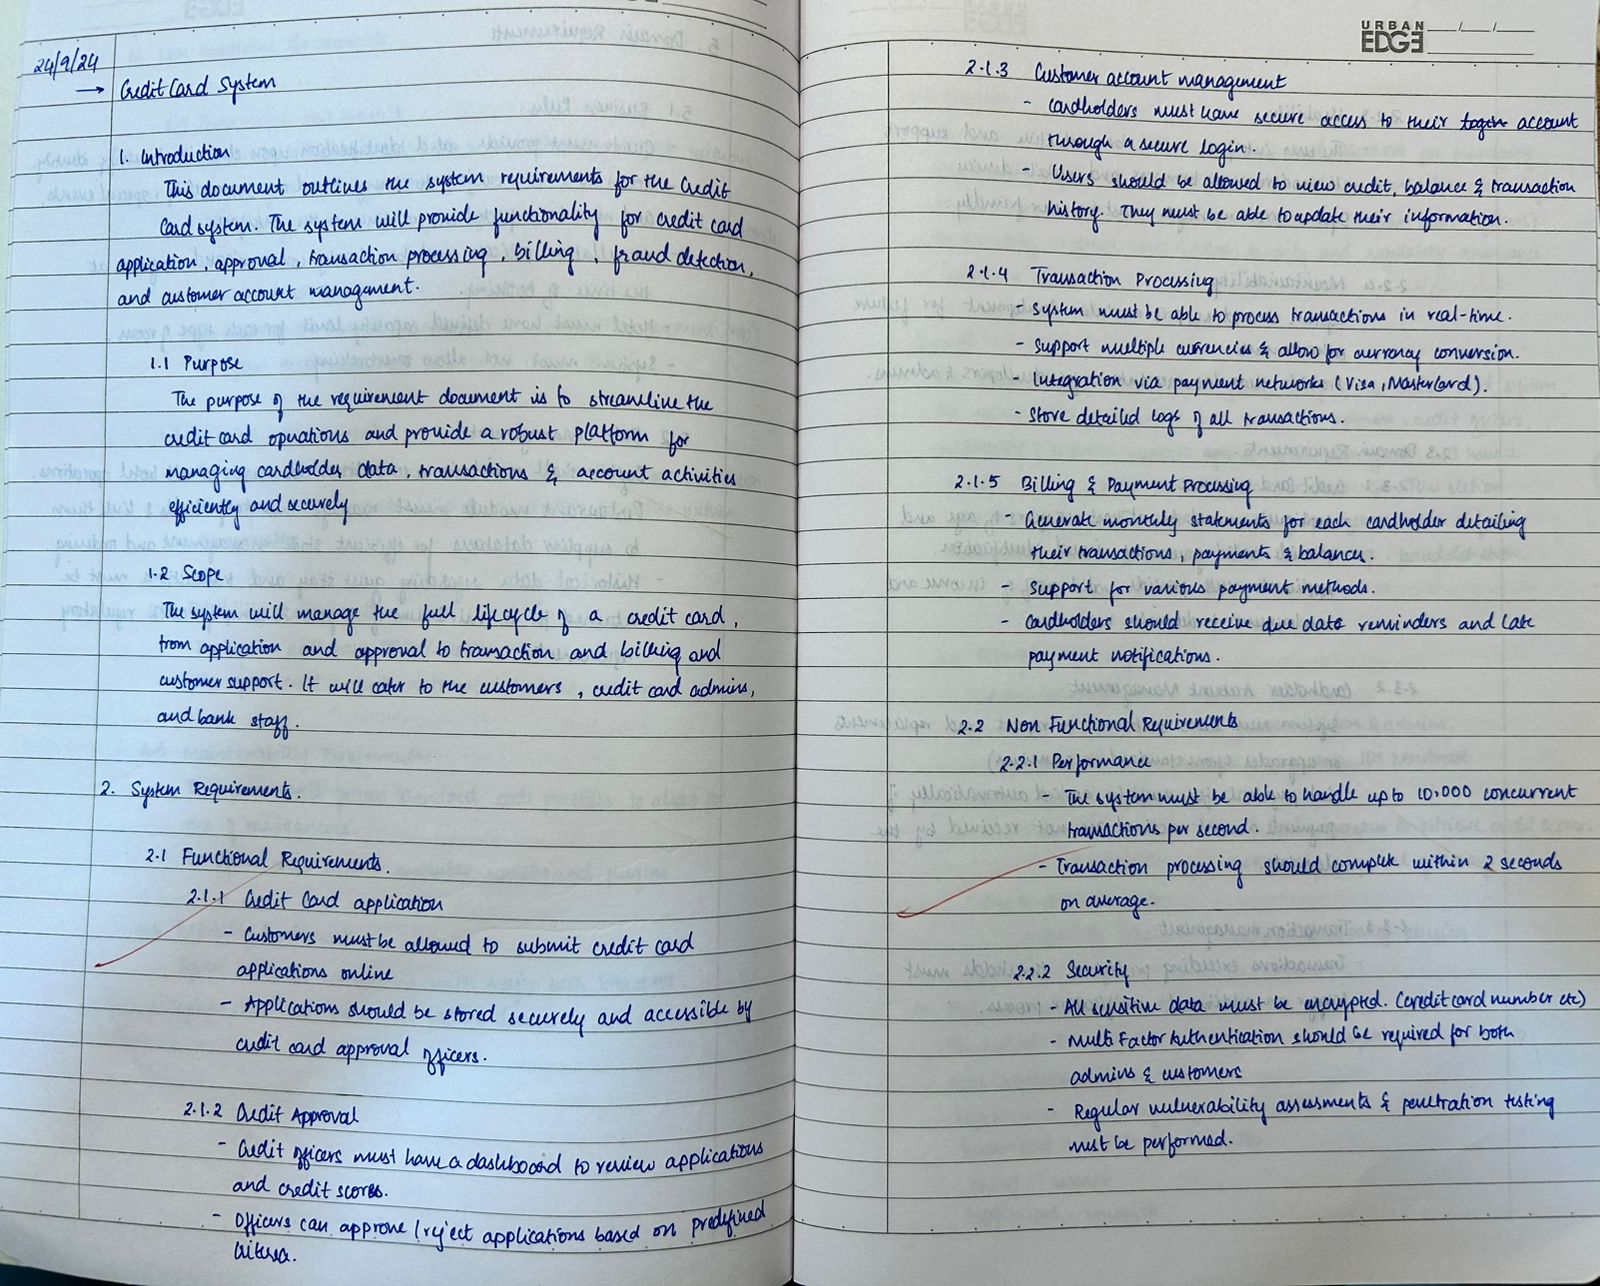 24/9/24
→ Credit Card System
1. Introduction
This document outlines the system requirements for the Credit
Card system. The system will provide functionality for credit card
application, approval, transaction processing, billing, fraud detection,
and customer account management.
1.1 Purpose
The purpose of the requirement document is to streamline the
credit card operations and provide a robust platform for
managing cardholder data, transactions & account activities
efficiently and securely
1.2 Scope
The system will manage the full lifecycle of a credit card,
from application and approval to transaction and billing and
customer support. It will cater to the customers, credit card admins,
and bank staff.
2. System Requirements.
2.1 Functional Requirements.
2.1.1 Credit Card application
- Customers must be allowed to submit credit card
applications online
- Applications should be stored securely and accessible by
credit card approval officers.
2.1.2 Credit Approval
- Credit officers must have a dashboard to review applications
and credit scores.
- Officers can approve/reject applications based on predefined
criteria.
URBAN
EDGE
2.1.3 Customer account management
- Cardholders must have secure access to their login account
through a secure login.
- Users should be allowed to view credit, balance & transaction
history. They must be able to update their information.
2.1.4 Transaction Processing
- System must be able to process transactions in real-time.
- Support multiple currencies & allow for currency conversion.
- Integration via payment networks (Visa, MasterCard).
- Store detailed logs of all transactions.
2.1.5 Billing & Payment Processing
- Generate monthly statements for each cardholder detailing
their transactions, payments & balances.
- Support for various payment methods.
- Cardholders should receive due date reminders and late
payment notifications.
2.2 Non Functional Requirements
2.2.1 Performance
- The system must be able to handle upto 10,000 concurrent
transactions per second.
- Transaction processing should complete within 2 seconds
on average.
2.2.2 Security
- All sensitive data must be encrypted. (credit card number etc)
- Multi Factor Authentication should be required for both
admins & customers
- Regular vulnerability assessments & penetration testing
must be performed.